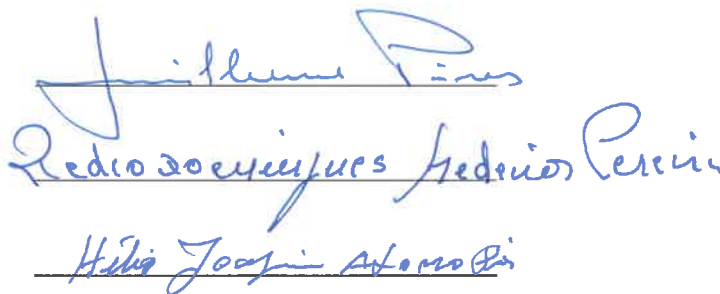 Guilherme Pires
Pedro Domingues Medeiros Pereira
Hélio Joaquim Afonso